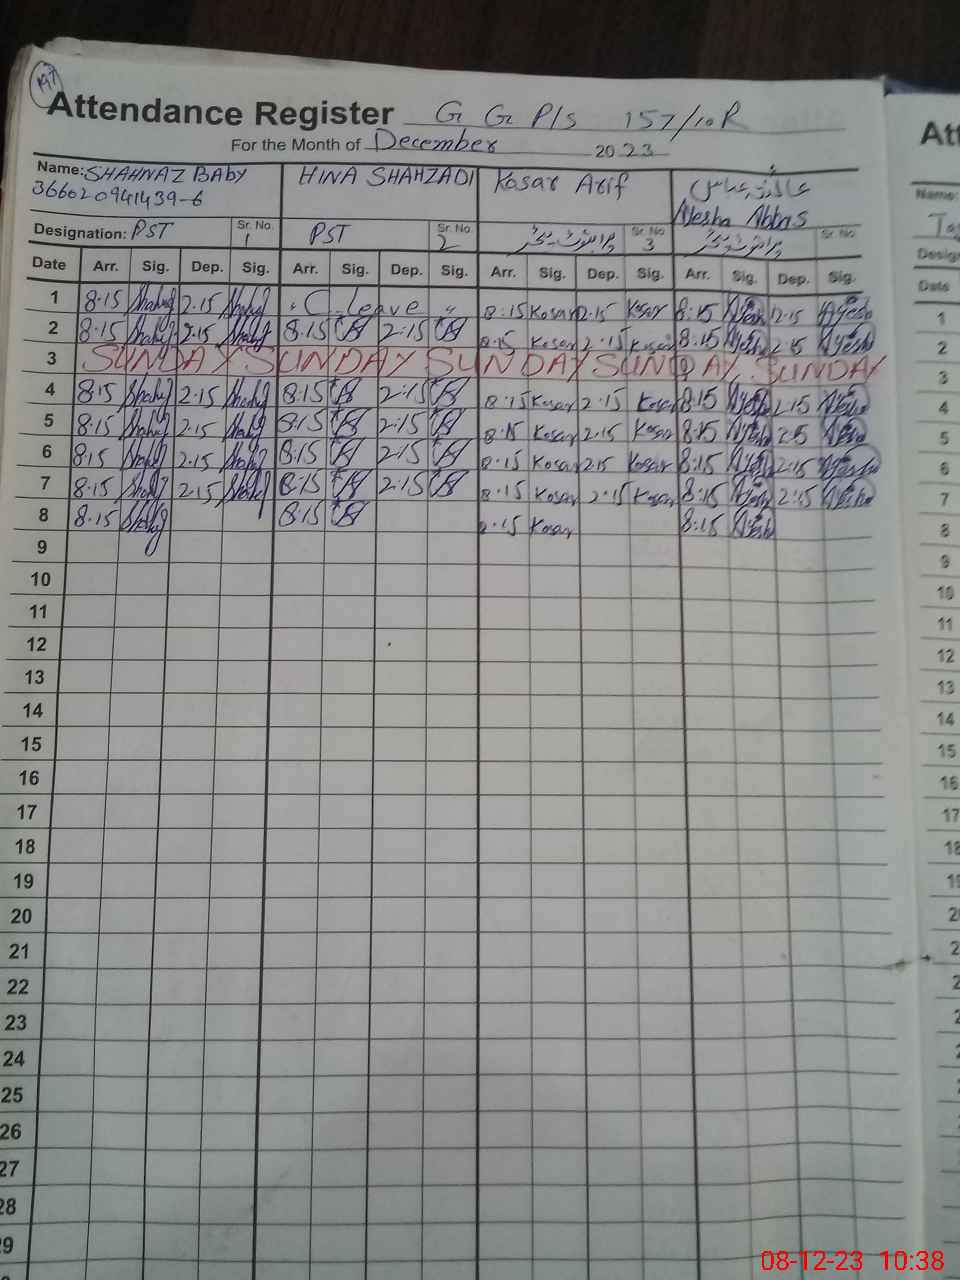 197
Attendance Register G G P/S 157/10R
For the Month of December 2023
Name: SHAHNAZ BABY HINA SHAHZADI Kosar Arif
366020941439-6 Alesha Abbas
Designation: PST Sr. No. 1 PST Sr. No. 2 Sr. No. 3 Sr. No.
Date Arr. Sig. Dep. Sig. Arr. Sig. Dep. Sig. Arr. Sig. Dep. Sig. Arr. Sig. Dep. Sig.
1 8.15 Shahg 2.15 Shahg " C leave " 8.15 Kosar 2.15 Kosar 8:15 2:15
2 8.15 Shahg 2.15 Shahg 8:15 2:15 8.15 Kosar 2.15 Kosar 8:15 2:15
3 SUNDAY SUNDAY SUNDAY SUNDAY SUNDAY
4 8.15 Shahg 2.15 Shahg 8:15 2:15 8.15 Kosar 2.15 Kosar 8:15 2:15
5 8.15 Shahg 2.15 Shahg 8:15 2:15 8.15 Kosar 2.15 Kosar 8:15
6 8.15 Shahg 2.15 Shahg 8:15 2:15 8.15 Kosar 2.15 Kosar 8:15 2:15
7 8.15 Shahg 2.15 Shahg 8:15 2:15 8.15 Kosar 2.15 Kosar 8:15 2:15
8 8.15 Shahg 8:15 Kosar 8:15
9
10
11
12
13
14
15
16
17
18
19
20
21
22
23
24
25
26
27
28
29
Att
Name:
Design
Date
1
2
3
4
5
6
7
8
9
10
11
12
13
14
15
16
17
18
08-12-23 10:38